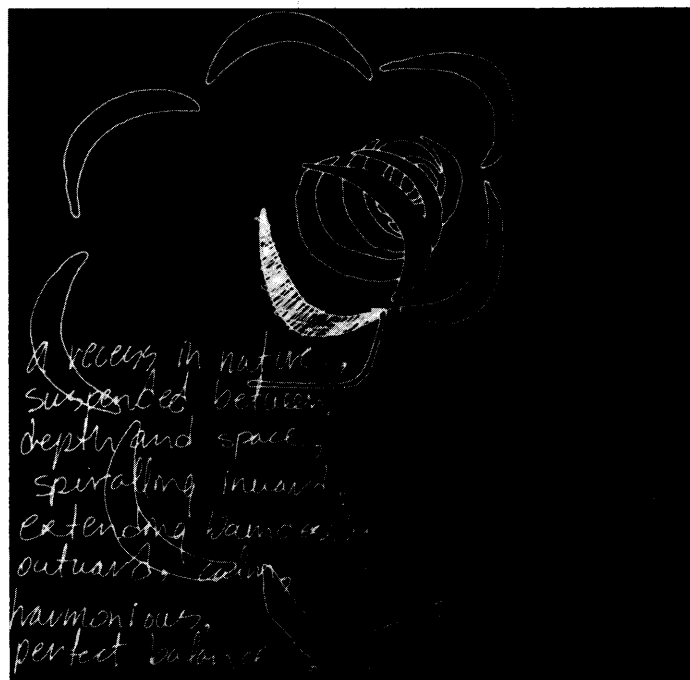 A recess in nature,
suspended between,
depth and space,
spiralling inward,
extending
outward. calm,
harmonious.
perfect balance